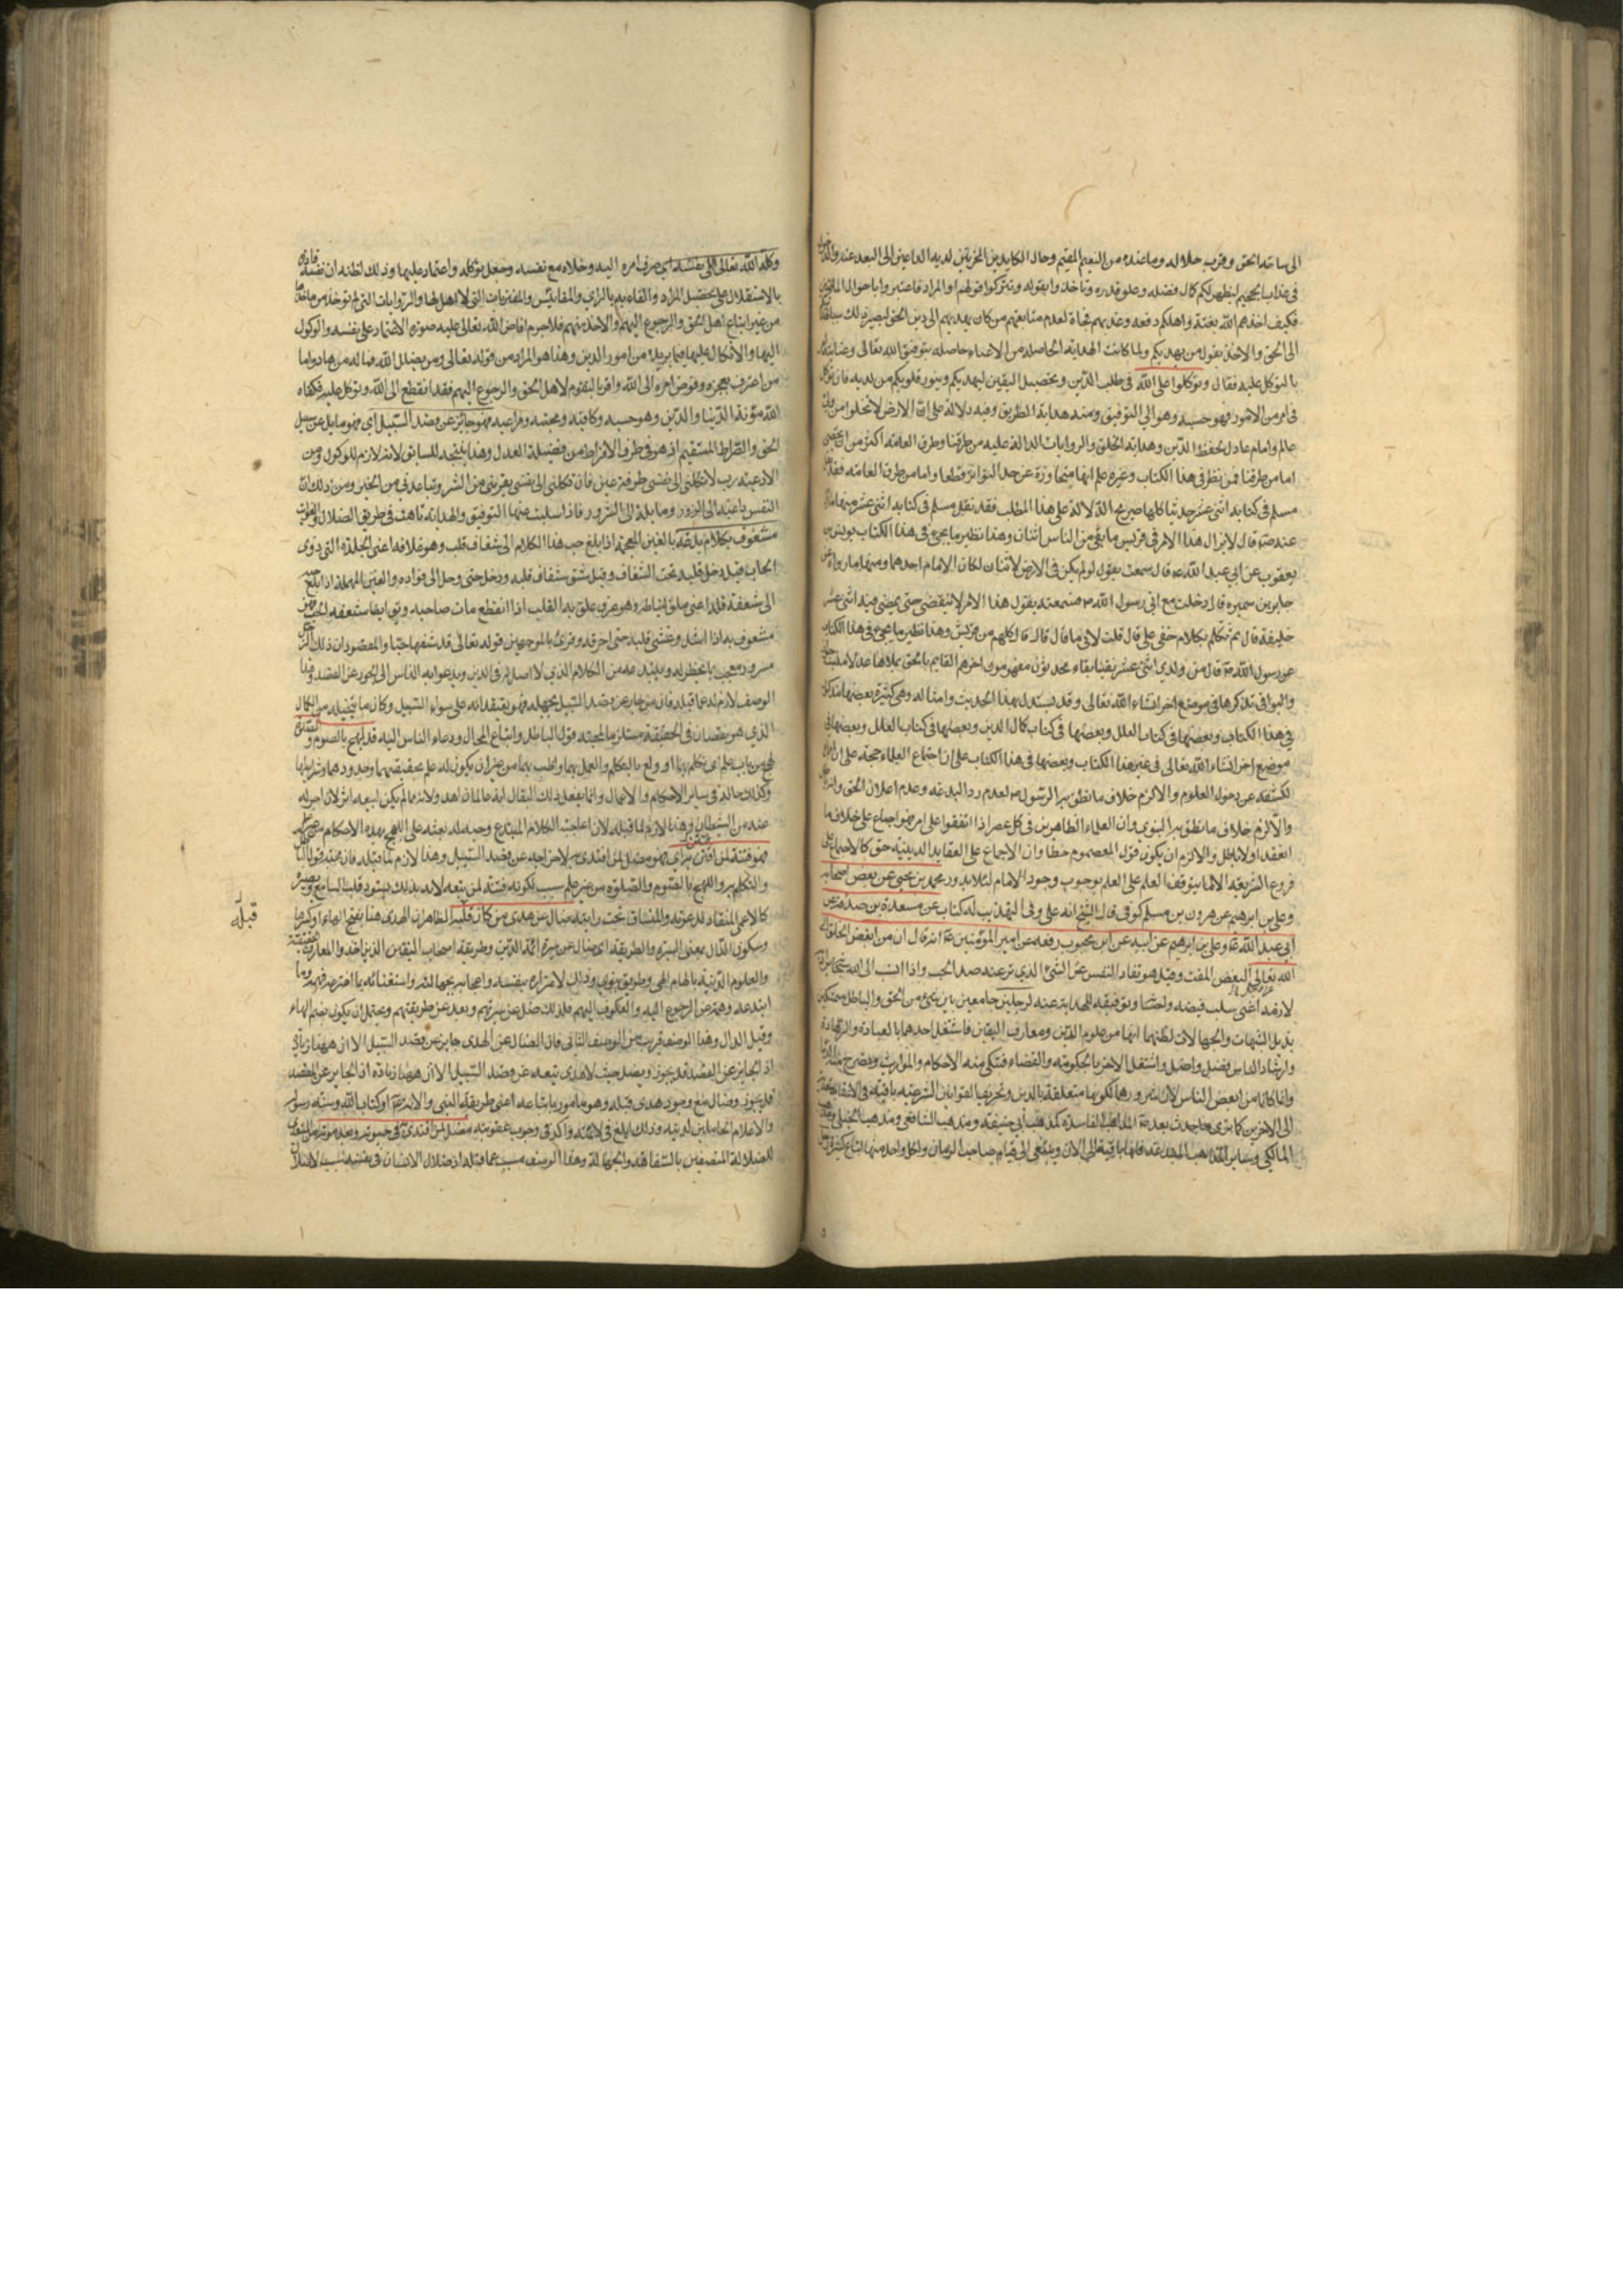 الى ساحة الحق وقرب جلاله وما عنده من النعيم المقيم وحال الكايدين الحزبين لديه الداعين الى البعد عنه
في عذاب الجحيم ليظهر لكم كمال فضله وعلو قدره وتأخذوا بقوله وتتركوا قولهم او المراد فاعتبروا باحوال
فكيف اخذهم الله بغتة واهلكهم دفعة وعذبهم فجأة لعدم متابعتهم من كان يهديهم الى دين الحق
الى الحق والاخذ بقول من يهديكم ولما كانت الهداية الحاصلة من حاصلة بتوفيق الله تعالى وعنايته
بالتوكل عليه فقال وتوكلوا على الله في طلب الدين وتحصيل اليقين ليهديكم وينور قلوبكم من لديه فان
في امر من الامور فهو حسبه وهو الى التوفيق ومنه هداية الطريق وفيه دلالة على ان الارض لا تخلوا من
عالم وامام عادل لحفظ الدين وهداية الخلق والروايات الدالة عليه من طرقنا وطرق العامة اكثر من ان تحصى
اما من طرقنا فمن نظر في هذا الكتاب وغيره علم انها متجاوزة عن حد التواتر قطعا واما من طرق العامة فقد
مسلم في كتابه اثنى عشر حديثا كلها صريح الدلالة على هذا المطلب فقد نقل مسلم في كتابه اثنى عشر منها
عنه ص قال لا يزال هذا الامر في قريش ما بقى من الناس اثنان وهذا نظير ما يجيء في هذا الكتاب يونس بن
يعقوب عن ابي عبد الله ع قال سمعته يقول لو لم يكن في الارض الا اثنان لكان الامام احدهما ومنها ما رواه
جابر بن سمرة قال دخلت مع ابي رسول الله ص فسمعته يقول هذا الامر لا ينقضى حتى يمضى فيه اثنى عشر
خليفة قال ثم تكلم بكلام خفى على قال قلت لابي ما قال قال قال كلهم من قريش وهذا نظير ما يجيء في هذا الكتاب
عن رسول الله ص قال من ولدي اثنى عشر نقيبا نجباء محدثون مفهمون اخرهم القايم بالحق يملاها عدلا
والبواقى نذكرها في موضع اخر انشاء الله تعالى وقد يستدل بهذا الحديث وامثاله وهي كثيرة بعضها مذكور
في هذا الكتاب وبعضها في كتاب العلل وبعضها في كتاب كمال الدين وبعضها في كتاب العلل وبعضها في
موضع اخر انشاء الله تعالى في غير هذا الكتاب وبعضها في هذا الكتاب على ان اجماع العلماء حجة
لكشفه عن دخول المعصوم والا لزم خلاف ما نطق به الرسول ص لعدم رد البدعة وعدم اعلان الحق
والا لزم خلاف ما نطق به النبوي وان العلماء الظاهرين في كل عصر اذا اتفقوا على امر فهو اجماع على خلاف ما
انعقد اولا باطل والا لزم ان يكون قول المعصوم خطا وان الاجماع على العقايد الدينية حق كالاجماع على
فروع الشريعة الا فيما يتوقف العلم على العلم بوجوب وجود الامام لئلا يدور محمد بن يحيى عن بعض اصحابه
وعلى بن ابراهيم عن هرون بن مسلم كوفى قال الشيخ انه على وفى التهذيب له كتاب عن مسعدة بن صدقة عن
ابي عبد الله ع وعلى بن ابراهيم عن ابيه عن ابن محبوب رفعه عن امير المؤمنين ع انه قال ان من ابغض الخلق الى
الله تعالى البغض المقت وقيل هو نفار النفس عن الشيء الذي ترغب عنه ضد الحب واذا نسب الى الله سبحانه
عز وجل
لازمه اعنى سلب فيضه ولطفه وتوفيقه للهداية عنه لرجلين جامعين بين شيء من الحق والباطل
بذيل الشبهات والجهالات لظنهما انها من علوم الدين ومعارف اليقين فاشتغل احدهما بالعبادة والزهادة
وارشاد الناس فضل واضل واشتغل الاخر بالحكومة والقضاء فتبكى منه الاحكام والمواريث وتصرخ منه
وانما كانا من ابغض الناس لان شرورهما لكونها متعلقة بالدين وتخريبا لقوانين الشرعية باقية في الاعقاب
الى الاخرين كما ترى فيما حدث بعده ص المذاهب الفاسدة كمذهب ابي حنيفة ومذهب الشافعى ومذهب الحنبلى
المالكى وساير المذاهب المبتدعة فانها باقية الى الان ويبقى الى قيام صاحب الزمان ولكل واحد منها اتباع كثيرة
وكله الله تعالى الى نفسه اى صرف امره اليه وخلاه مع نفسه وجعل توكله واعتماده عليها وذلك لظنه ان نفسه قادرة
بالاستقلال على تحصيل المراد والقاء بيده بالراى والمقاييس والمفتريات التى لا اصل لها والروايات التى لم توخذ من ماخذها
من غير اتباع اهل الحق والرجوع اليهم والاخذ منهم فلا جرم افاض الله تعالى عليه صورة الاعتماد على نفسه والوكول
اليها والاتكال عليها فيما يريده من امور الدين وهذا هو المراد من قوله تعالى ومن يضلل الله فما له من هاد واما
من اعترف بعجزه وفوض امره الى الله واقر بالتقدم لاهل الحق والرجوع اليهم فقد انقطع الى الله وتوكل عليه فكفاه
الله مؤنة الدنيا والدين وهو حسبه وكافيه ومحبه وراعيه فهو جائر عن قصد السبيل اى فهو مايل عن سبيل
الحق والصراط المستقيم اذ هو في طرف الافراط من فضيلة العدل وهذا نتيجة للسابق لانه لازم للوكول ومن
الادعية رب لا تكلنى الى نفسى طرفة عين فان تكلنى الى نفسى تقربنى من الشر وتباعدنى من الخير ومن ذلك ان
النفس داعية الى الزور ومايلة الى الشرور فاذا سلبت عنها التوفيق والهداية تاهت في طريق الضلال
مشغوف بكلام بدعة بالغين المعجمة اذا بلغ حب هذا الكلام الى شغاف قلبه وهو غلافه اعنى الجلدة التى دون
الحجاب قيل دخل قلبه تحت الشغاف وقيل شق شغاف قلبه ودخل حتى وصل الى فؤاده والعين المهملة اذا بلغ
الى شعفة قلبه اعنى معلق النياط وهو عرق علق به القلب اذا انقطع مات صاحبه
مشعوف به اذا وغشى قلبه حتى احرقه وقرئ بالوجهين قوله تعالى قد شغفها حبا والمقصود ان ذلك
مسرور معجب بما يخطر له ويبتدعه من الكلام الذي لا اصل له في الدين ويدعوا به الناس الى الجور عن القصد وهذا
الوصف لازم لما قبله فان من جار عن قصد السبيل لجهله فهو يعتقد انه على سواء السبيل وكان ما يتخيله من الكمال
الذي هو نقصان في الحقيقة مستلزما لمحبته قول الباطل واتباع المحال ودعاء الناس اليه قد لهج بالصوم والصلوة
لهج من باب علم اى تكلم بهما او ولع بالتكلم والعمل بهما واظب بهما من غير ان يكون له علم بحقيقتهما وحدودهما وشرايطهما
وكذلك حاله في ساير الاحكام والاعمال وانما يفعل ذلك ليقال انه عالم زاهد ولانه ما لم يكن لبدعه اثر لان
عنده من الشيطان وهذا لازم لما قبله لان اعجابه بكلام المبتدع وحبه له بعثه على اللهج بهذه الاحكام
فهو فتنة لمن افتتن به اى فهو مضل لمن اقتدى به لاخراجه عن قصد السبيل وهذا لازم لما قبله فان محبة قول الباطل
والتكلم به واللهج بالصوم والصلوة من غير علم سبب لكونه فتنة لمن يتبعه لانه بذلك يسود قلب السامع
كالاعمى المنقاد لدعوته والمنساق تحت رايته ضال عن هدى من كان قبله الظاهر ان الهدى هنا بفتح الهاء او كسرها
وسكون الدال بمعنى السيرة والطريقة اى ضال عن سيرة ائمة الدين وطريقة اصحاب اليقين الذين اخذوا المعارف
والعلوم الدينية بالهام الهى وطريق نبوي وذلك لاغتراره بنفسه واعجابه بجهالته واستغنائه بما اخترعه فهمه وما
ابتدعه وهمه عن الرجوع اليه والعكوف اليهم فلذلك ضل عن سيرتهم وبعد عن طريقتهم ويحتمل ان يكون بضم الهاء
وفتح الدال وهذا الوصف قريب من الوصف الثانى فان الضال عن الهدى جاير عن قصد السبيل الا ان ههنا زيادة
اذ الجاير عن القصد قد يجوز ويضل حيث لا هدى يتبعه عن قصد السبيل الا ان ههنا زيادة اذ الجاير عن القصد
قد يجوز وضال مع وجود هدى قبله وهو مامور باتباعه اعنى طريقة النبي والائمة ع او كتاب الله وسنة رسوله
والاعلام الحاملين لدينه وذلك ابلغ في لائمته واكد في وجوب عقوبته مضل لمن اقتدى به في حيوته وبعد موته
للضلالة المتصفين بالشقاوة والجهالة وهذا الوصف مسبب عما قبله اذ ضلال الانسان في نفسه سبب لاضلال
قبله